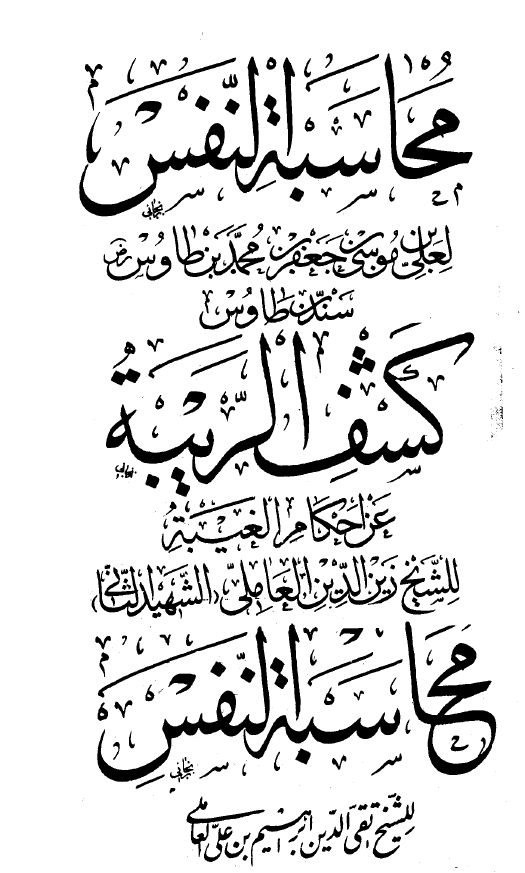 محاسبة النفس
لعلي بن موسى بن جعفر بن محمد بن طاوس رض
طاوس
كشف الريبة
عن احكام الغيبة
للشيخ زين الدين العاملي (الشهيد الثاني)
محاسبة النفس
للشيخ تقي الدين ابراهيم بن علي العاملي